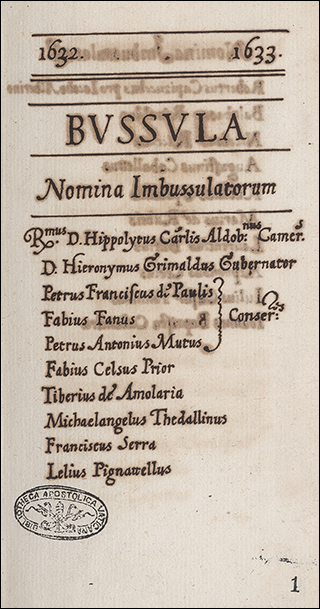 1632. 1633.
BVSSVLA
Nomina Imbussulatorum
R.mus D. Hippolytus Carlis Aldob.nus Camer.s
D. Hieronymus Grimaldus Gubernator
Petrus Franciscus de Paulis
Fabius Fanus & Conser.res
Petrus Antonius Mutus
Fabius Celsus Prior
Tiberius de Amolaria
Michaelangelus Thedallinus
Franciscus Serra
Lelius Pignattellus
BIBLIOTHECA APOSTOLICA VATICANA
1